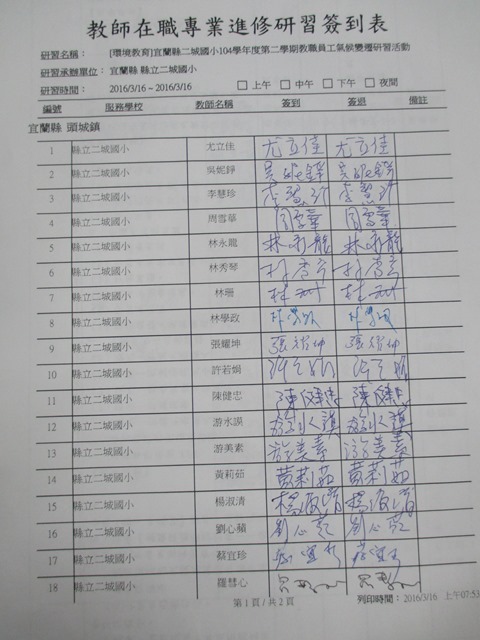 教師在職專業進修研習簽到表
研習名稱： [環境教育]宜蘭縣二城國小104學年度第二學期教職員工氣候變遷研習活動
研習承辦單位： 宜蘭縣 縣立二城國小
研習時間： 2016/3/16 ~ 2016/3/16 □上午 □中午 □下午 □夜間
編號 服務學校 教師名稱 簽到 簽退 備註
宜蘭縣 頭城鎮
1 縣立二城國小 尤立佳 尤立佳 尤立佳
2 縣立二城國小 吳妮錚 吳妮錚 吳妮錚
3 縣立二城國小 李慧珍 李慧珍 李慧珍
4 縣立二城國小 周雪華 周雪華 周雪華
5 縣立二城國小 林永龍 林永龍 林永龍
6 縣立二城國小 林秀琴 林秀琴 林秀琴
7 縣立二城國小 林珊 林珊 林珊
8 縣立二城國小 林學政 林學政 林學政
9 縣立二城國小 張耀坤 張耀坤 張耀坤
10 縣立二城國小 許若娟 許若娟 許若娟
11 縣立二城國小 陳健忠 陳健忠 陳健忠
12 縣立二城國小 游水謨 游水謨 游水謨
13 縣立二城國小 游美素 游美素 游美素
14 縣立二城國小 黃莉茹 黃莉茹 黃莉茹
15 縣立二城國小 楊淑清 楊淑清 楊淑清
16 縣立二城國小 劉心蘋 劉心蘋 劉心蘋
17 縣立二城國小 蔡宜珍
18 縣立二城國小 羅彗心
第 1 頁 / 共 2 頁
列印時間：2016/3/16 上午07:53